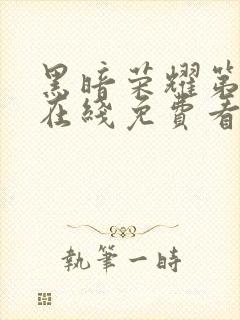 黑暗荣耀第
在线免費看
執筆一時